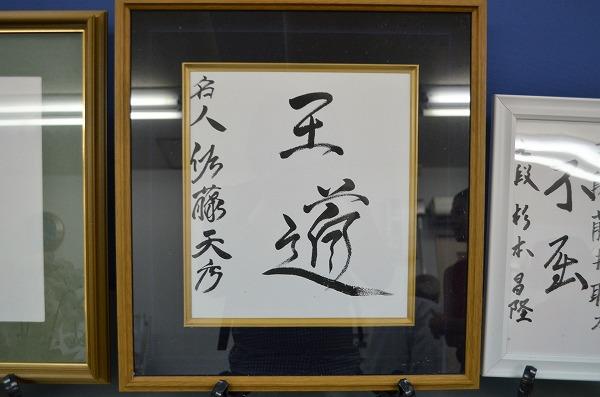 王道
名人 佐藤天彦
不屈
段 杉本昌隆